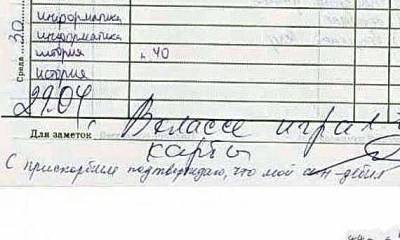 30
Среда
информатика
информатика
история § 40
история
29.04
Для заметок В классе играл в
карты
С прискорбием подтверждаю, что мой сын - дебил